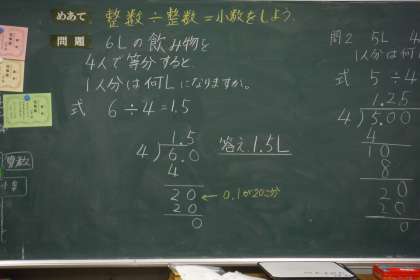 めあて 整数÷整数=小数をしよう。
問題 6Lの飲み物を
4人で等分すると
1人分は何Lになりますか。
式 6÷4=1.5
1.5
4)6.0
4
20 ← 0.1が20こ分
20
0
答え 1.5L
問2 5L 4
1人分は何
式 5÷4
1.25
4)5.00
4
10
8
20
20
0
整数